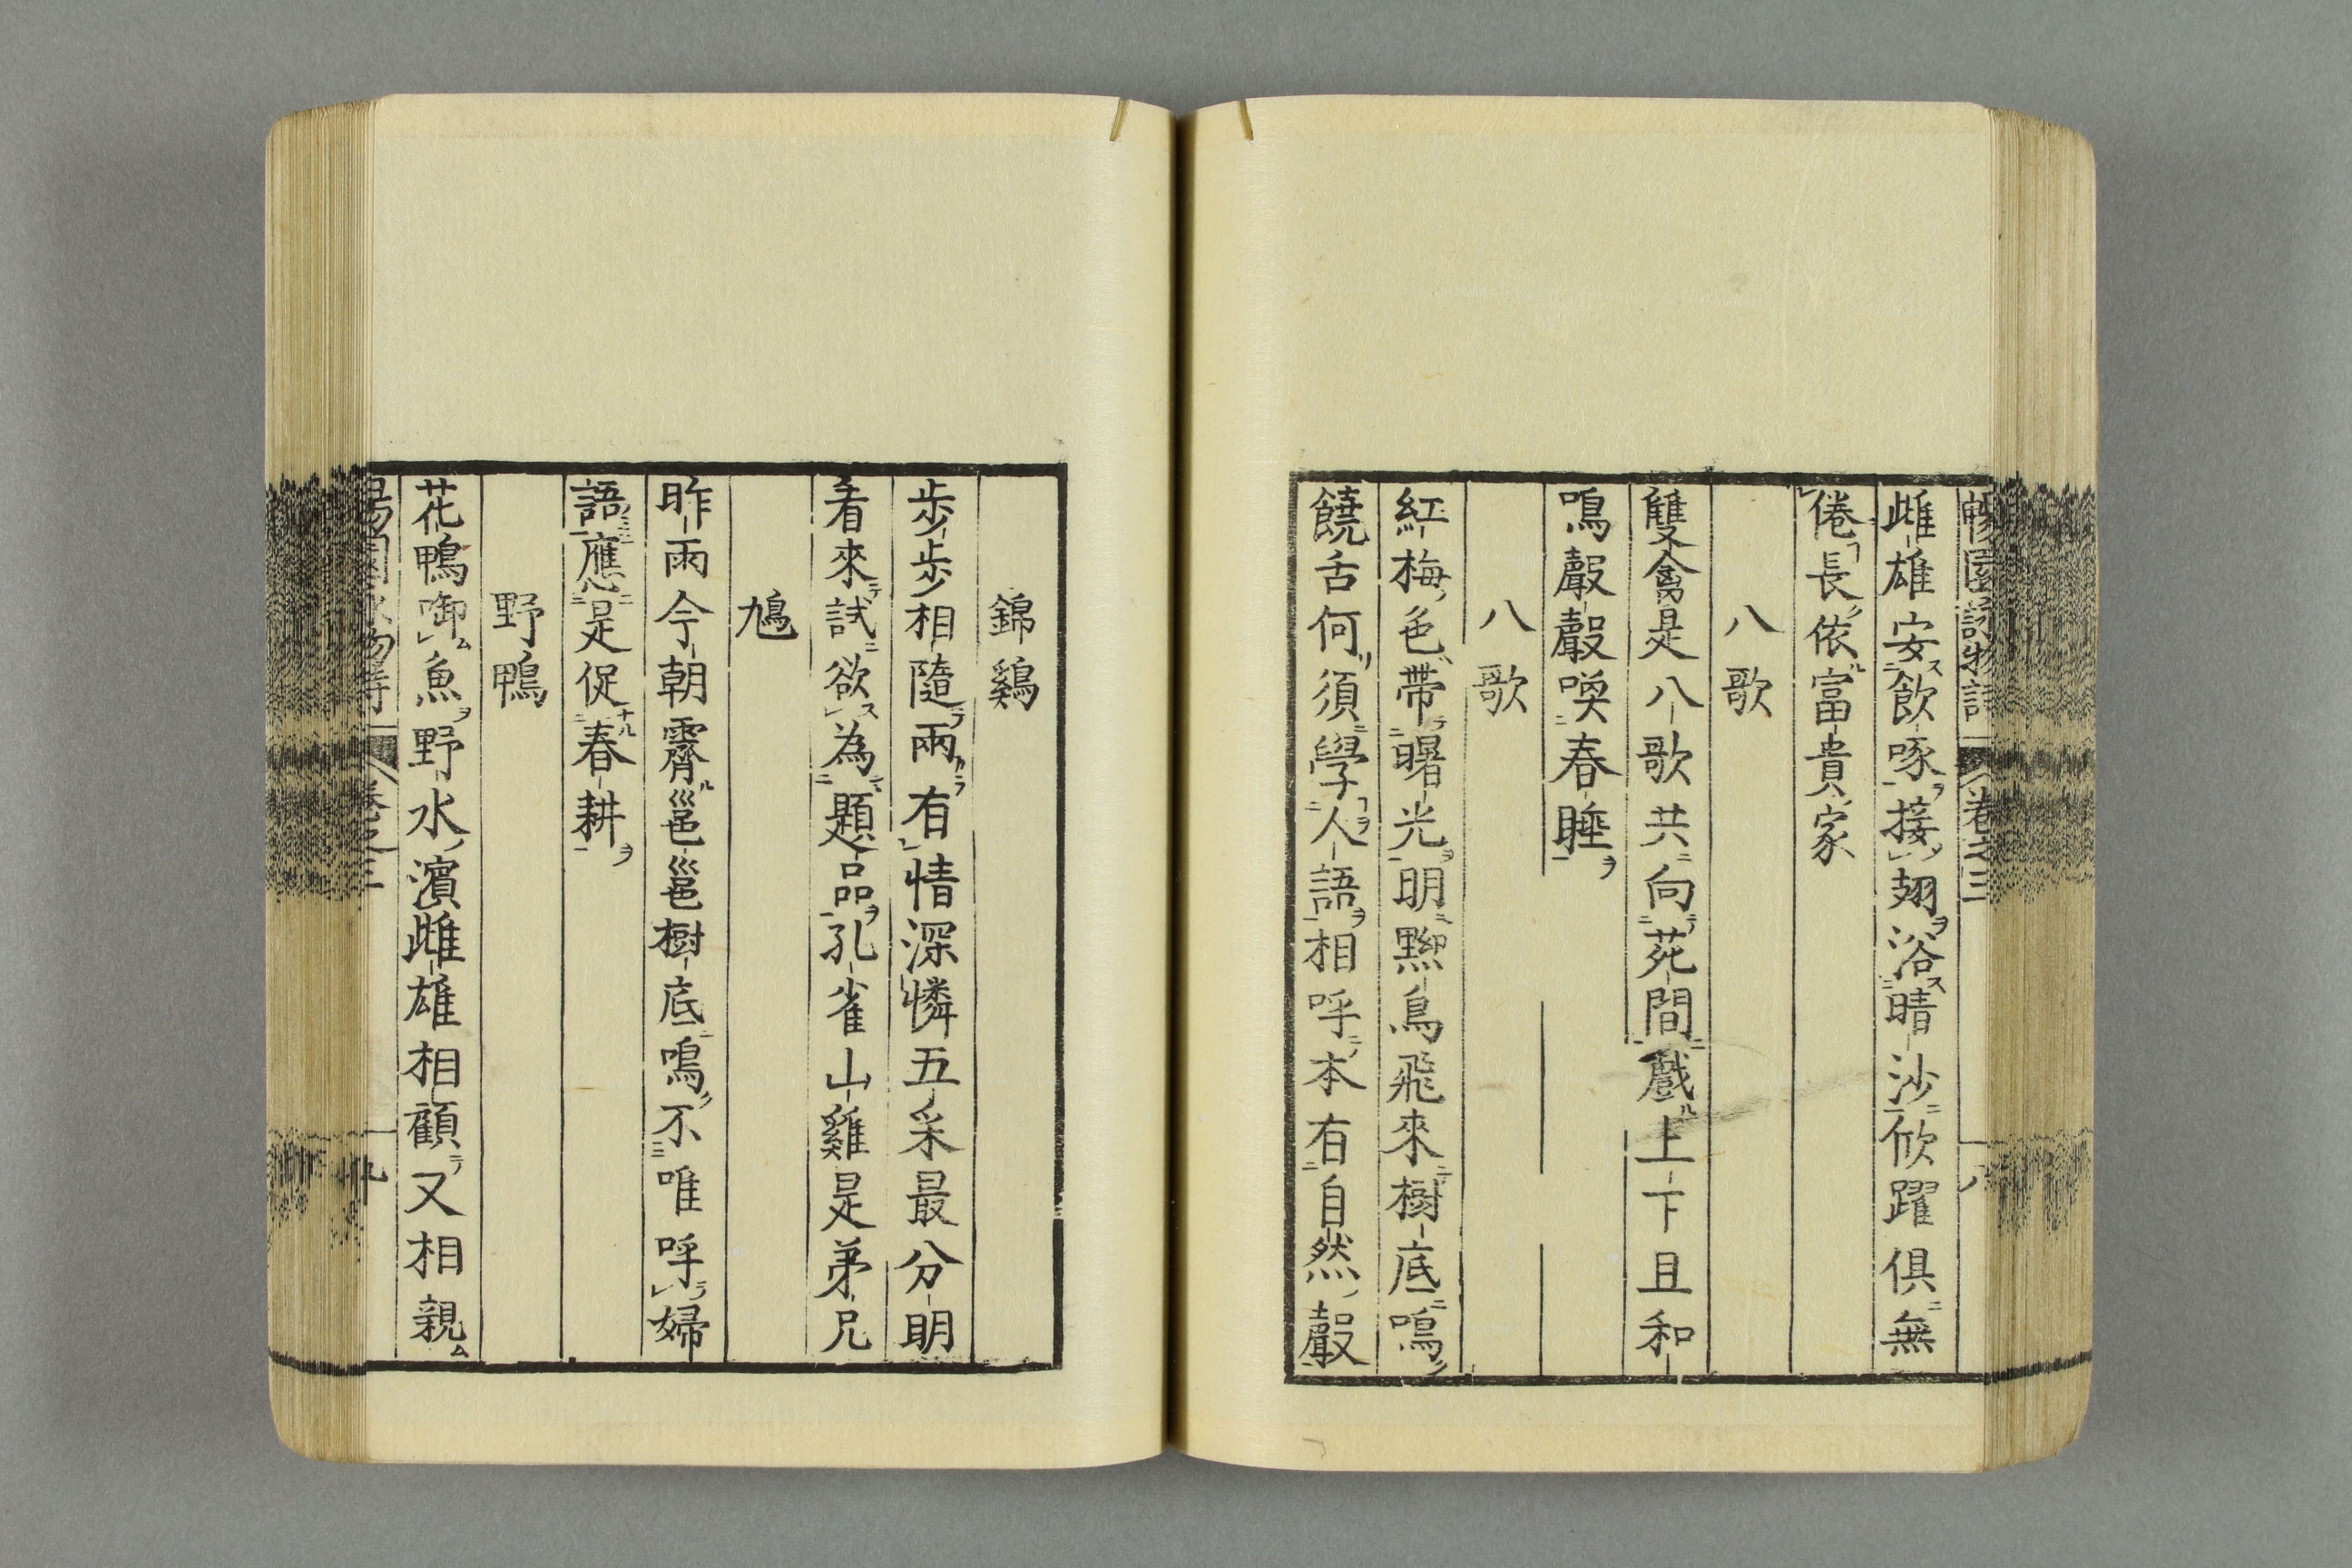 暢園詠物詩 卷之三 八
雌雄安飲啄接翅浴晴沙欣躍俱無
倦長依富貴家
八歌
雙禽是八歌共向苑間戲上下且和
鳴聲聲喚春睡
八歌
紅梅色帶曙光明㸃鳥飛來樹底鳴
饒舌何須學人語相呼本有自然聲
錦鷄
步步相隨兩有情深憐五采最分明
看來試欲為題品孔雀山雞是弟兄
鳩
昨雨今朝霽邕邕樹底鳴不唯呼婦
語應是促春耕
野鴨
花鴨啣魚野水濱雌雄相顧又相親
卷之三 九